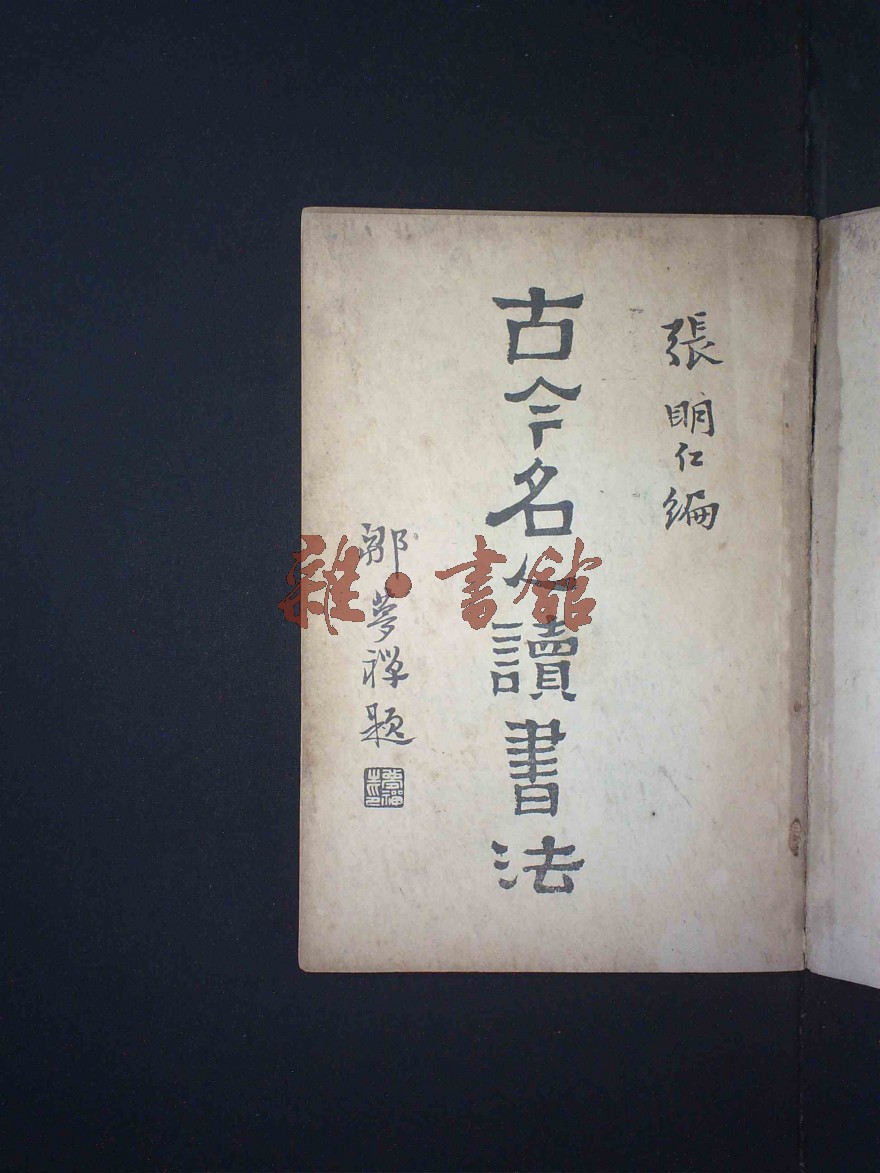 張明仁編
古今名人讀書法
鄒夢禅題
雜·書館